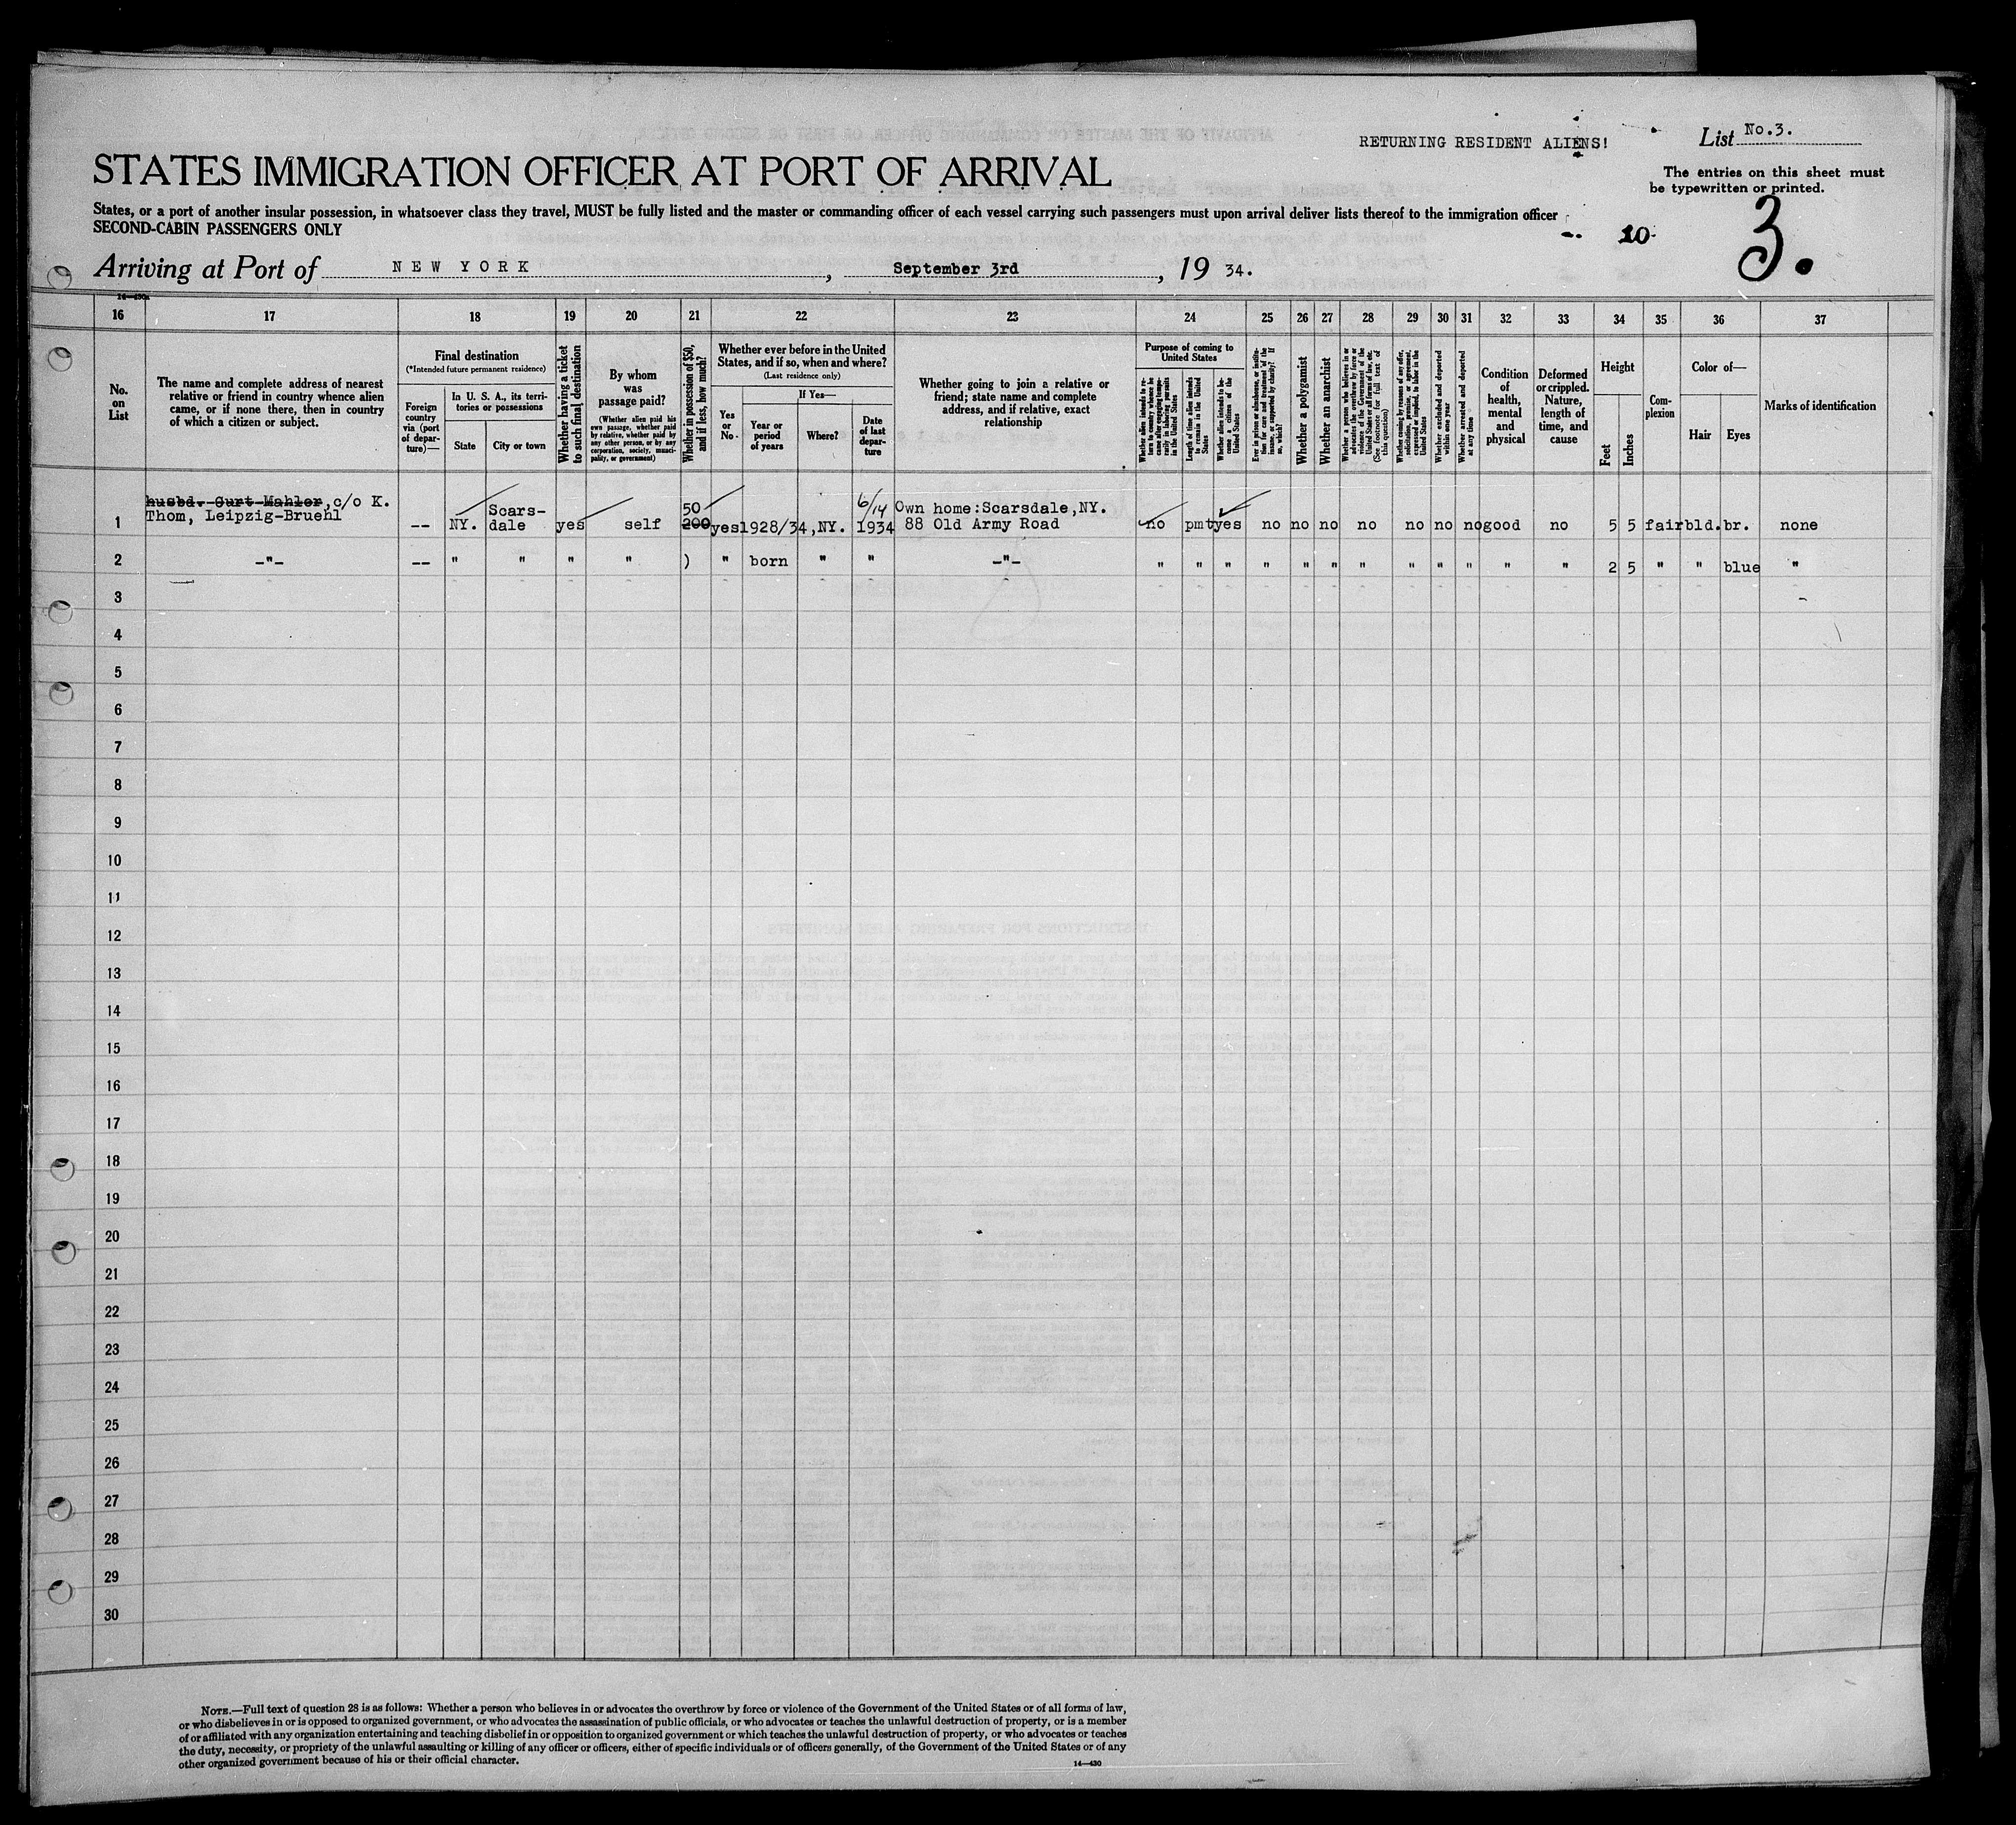 RETURNING RESIDENT ALIENS!
List No.3.
The entries on this sheet must
be typewritten or printed.
STATES IMMIGRATION OFFICER AT PORT OF ARRIVAL
States, or a port of another insular possession, in whatsoever class they travel, MUST be fully listed and the master or commanding officer of each vessel carrying such passengers must upon arrival deliver lists thereof to the immigration officer
SECOND-CABIN PASSENGERS ONLY
10
3.
Arriving at Port of NEW YORK, September 3rd, 19 34.
16 17 18 19 20 21 22 23 24 25 26 27 28 29 30 31 32 33 34 35 36 37
No.
on
List
The name and complete address of nearest
relative or friend in country whence alien
came, or if none there, then in country
of which a citizen or subject.
Final destination
(*Intended future permanent residence)
Foreign
country
via (port
of depar-
ture)—
In U. S. A., its terri-
tories or possessions
State
City or town
Whether having a ticket
to such final destination
By whom
was
passage paid?
(Whether alien paid his
own passage, whether paid
by relative, whether paid by
any other person, or by any
corporation, society, munici-
pality, or government)
Whether in possession of $50,
and if less, how much?
Whether ever before in the United
States, and if so, when and where?
(Last residence only)
Yes
or
No
If Yes—
Year or
period
of years
Where?
Date
of last
depar-
ture
Whether going to join a relative or
friend; state name and complete
address, and if relative, exact
relationship
Purpose of coming to
United States
Whether alien intends to re-
turn to country whence he
came after engaging tempo-
rarily in laboring pursuits
in the United States
Length of time alien intends
to remain in the United
States
Whether alien intends to be-
come a citizen of the
United States
Ever in prison or almshouse, or institu-
tion for care and treatment of the
insane, or supported by charity? If
so, which?
Whether a polygamist
Whether an anarchist
Whether a person who believes in or
advocates the overthrow by force or
violence of the Government of the
United States or all forms of law, etc.
(See footnote for full text of
this question)
Whether coming by reason of any offer,
solicitation, promise, or agreement,
expressed or implied, to labor in the
United States
Whether excluded and deported
within one year
Whether arrested and deported
at any time
Condition
of
health,
mental
and
physical
Deformed
or crippled.
Nature,
length of
time, and
cause
Height
Feet
Inches
Com-
plexion
Color of—
Hair
Eyes
Marks of identification
husbd. Curt Mahler, c/o K.
Thom, Leipzig-Bruehl
1 -- NY. Scars-
dale yes self 50 200 yes 1928/34, NY. 6/14
1934 Own home:Scarsdale,NY.
88 Old Army Road no pmt yes no no no no no no no good no 5 5 fair bld. br. none
2 -"- -- " " " " ) " born " " -"- " " " " " " " " " " " " 2 5 " " blue "
3
4
5
6
7
8
9
10
11
12
13
14
15
16
17
18
19
20
21
22
23
24
25
26
27
28
29
30
NOTE.—Full text of question 28 is as follows: Whether a person who believes in or advocates the overthrow by force or violence of the Government of the United States or of all forms of law,
or who disbelieves in or is opposed to organized government, or who advocates the assassination of public officials, or who advocates or teaches the unlawful destruction of property, or is a member
of or affiliated with any organization entertaining and teaching disbelief in or opposition to organized government or which teaches the unlawful destruction of property, or who advocates or teaches
the duty, necessity, or propriety of the unlawful assaulting or killing of any officer or officers, either of specific individuals or of officers generally, of the Government of the United States or of any
other organized government because of his or their official character.
14—430